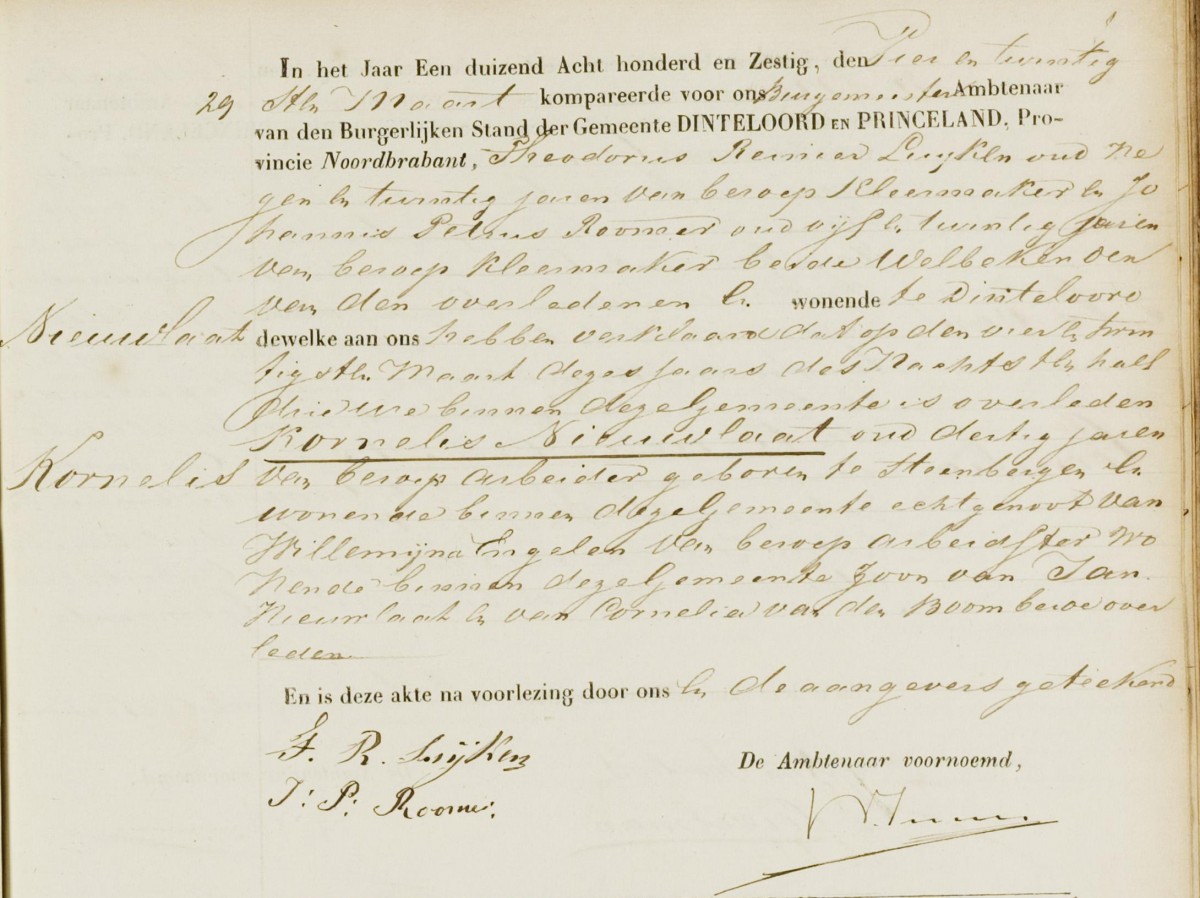 In het Jaar Een duizend Acht honderd en Zestig, den Vier en twintig
29 sten Maart kompareerde voor ons Burgemeester Ambtenaar
van den Burgerlijken Stand der Gemeente DINTELOORD EN PRINCELAND, Pro-
vincie Noordbrabant, Theodorus Reinier Luijken oud ne
gen en twintig jaren van beroep Kleermaker en Jo
hannis Petrus Roomer oud vijf en twintig jaren
van beroep kleermaker beide Welbekenden
van den overledenen en wonende te Dinteloord
Nieuwlaat dewelke aan ons hebben verklaard dat op den vier en twin
tigsten Maart dezes jaars des Nachts ten half
drie ure binnen deze Gemeente is overleden
Kornelis Nieuwlaat oud dertig jaren
Kornelis van beroep arbeider geboren te Steenbergen en
wonende binnen deze Gemeente echtgenoot van
Willemijna Engelen van beroep arbeidster wo
nende binnen deze Gemeente Zoon van Jan
Nieuwlaat en van Cornelia van den Boom beide over
leden
En is deze akte na voorlezing door ons en de aangevers geteekend
T. R. Luijken
De Ambtenaar voornoemd,
J: P: Roomer